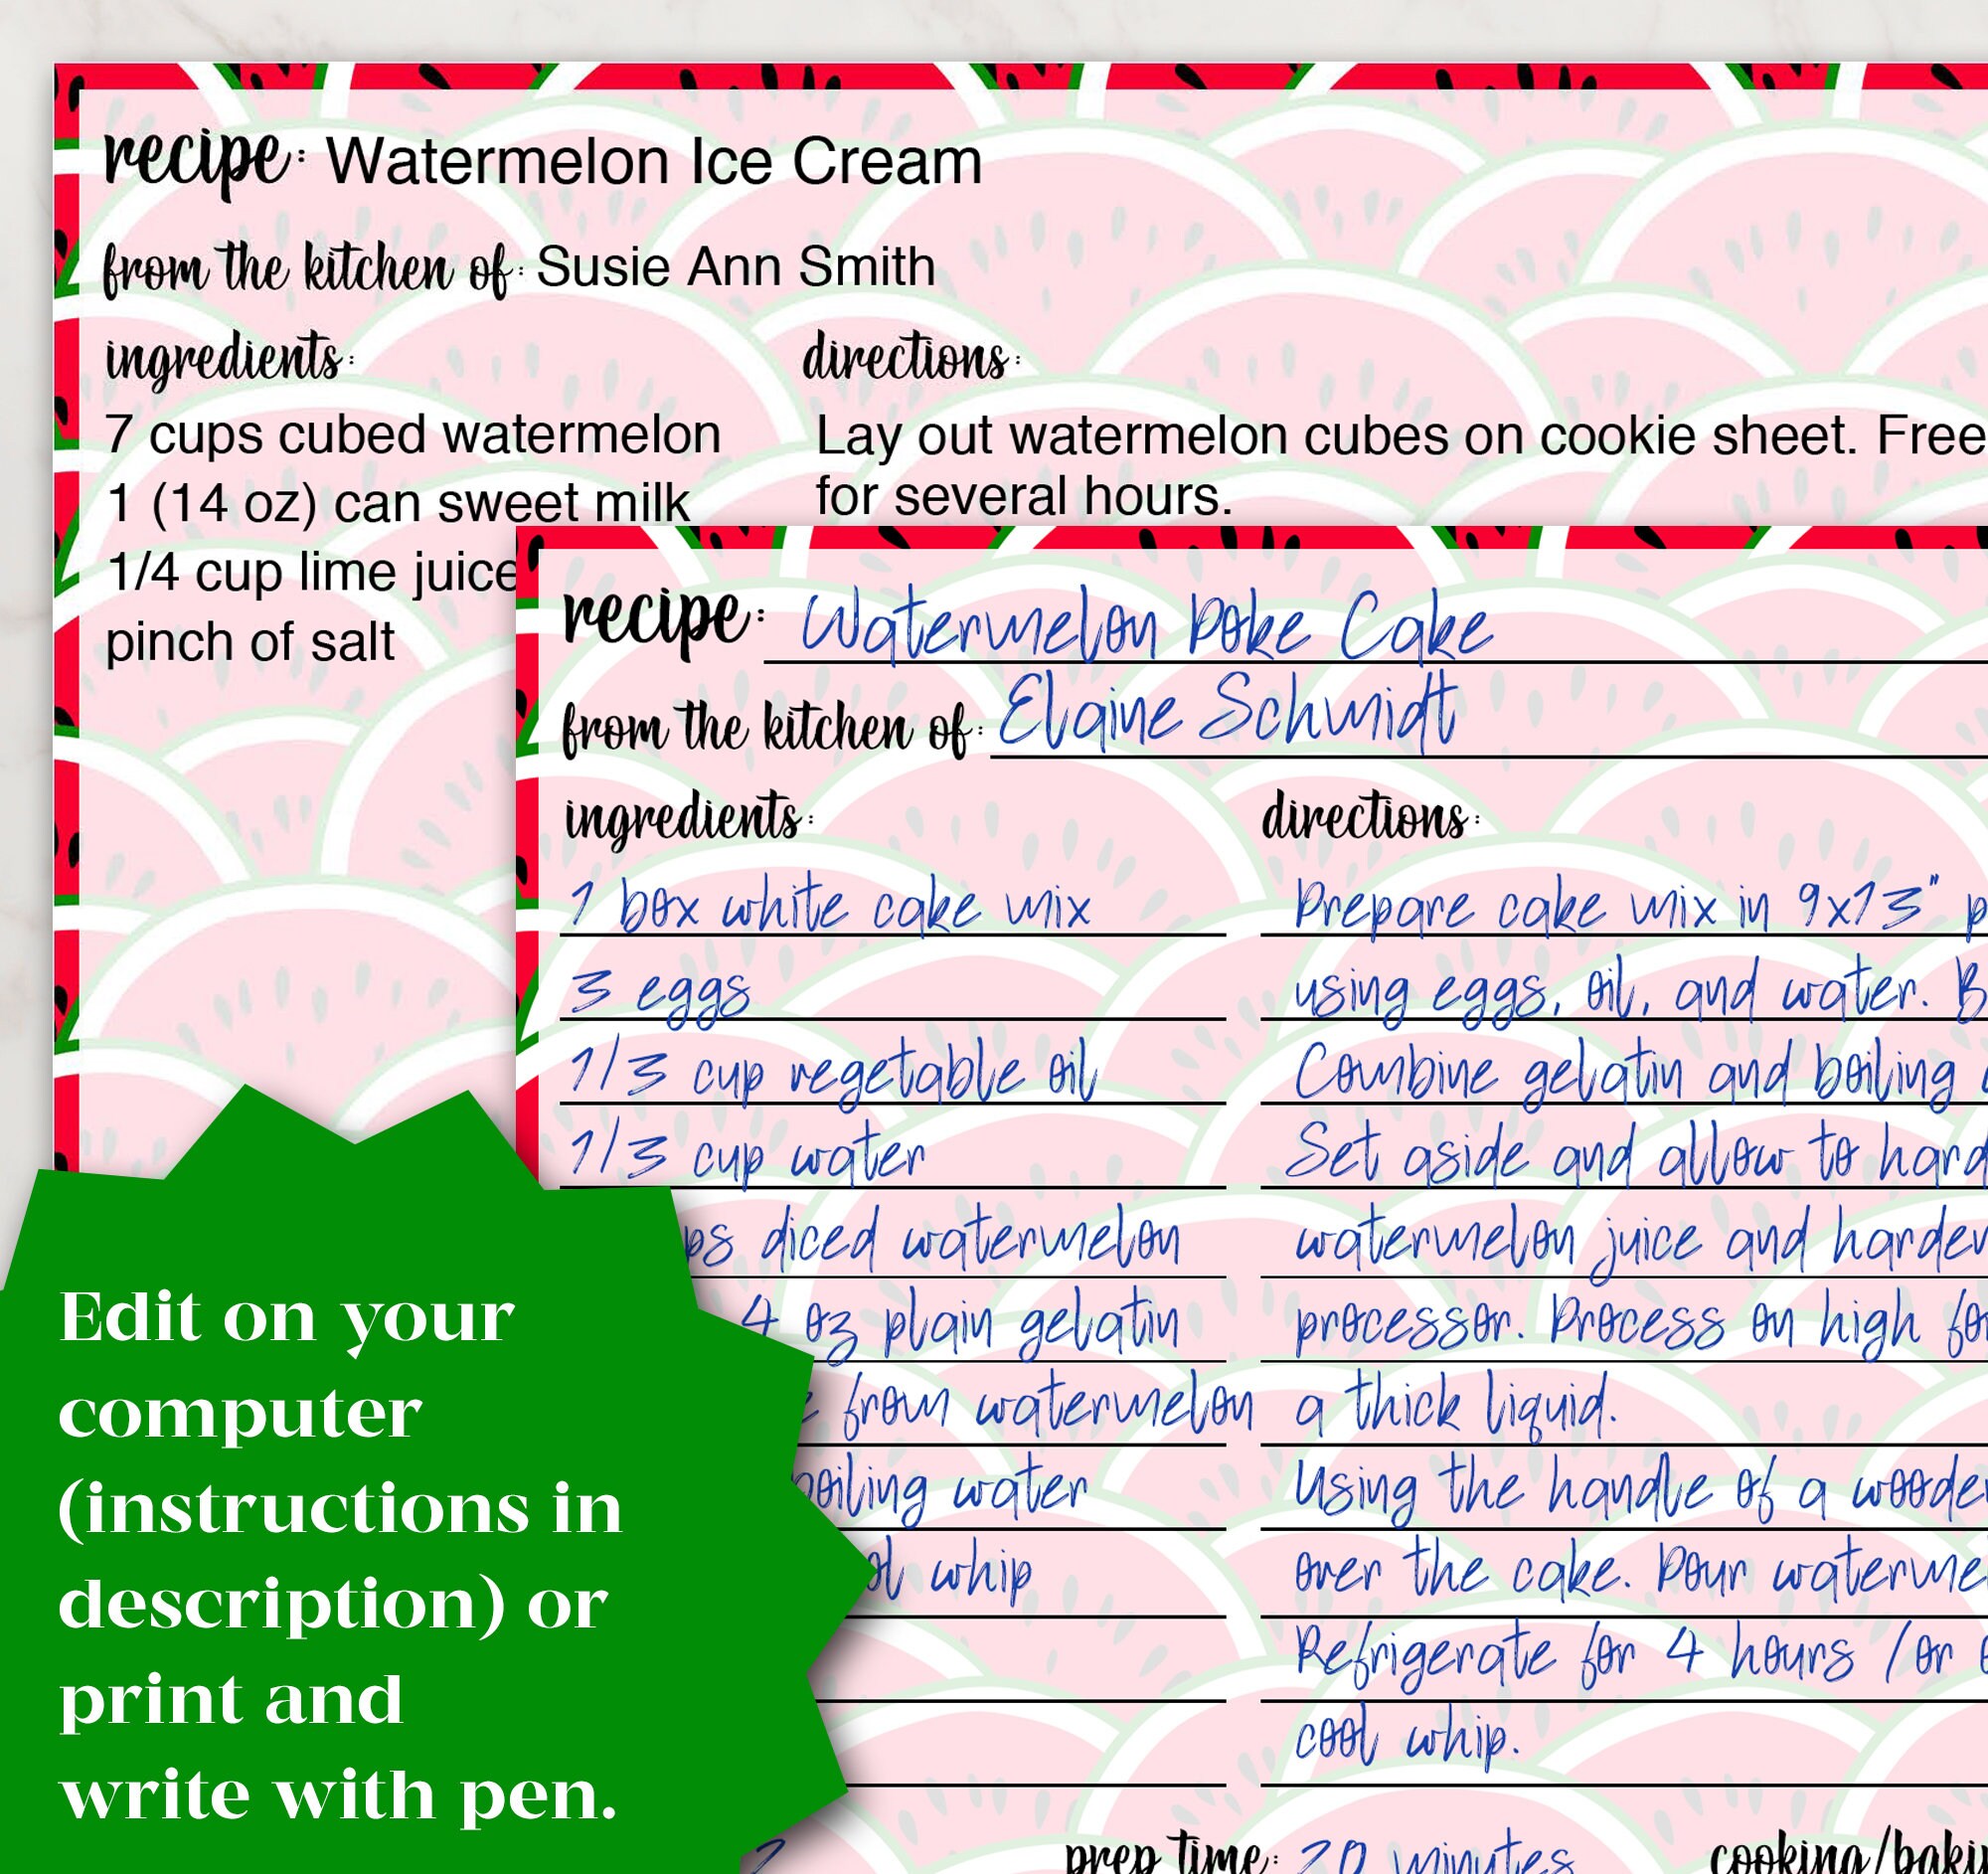 recipe: Watermelon Ice Cream
from the kitchen of: Susie Ann Smith
ingredients:
7 cups cubed watermelon
1 (14 oz) can sweet milk
1/4 cup lime juice
pinch of salt
directions:
Lay out watermelon cubes on cookie sheet. Free
for several hours.
recipe: Watermelon Poke Cake
from the kitchen of: Elaine Schmidt
ingredients:
1 box white cake mix
3 eggs
1/3 cup vegetable oil
1/3 cup water
diced watermelon
4 oz plain gelatin
from watermelon
boiling water
whip
directions:
Prepare cake mix in 9x13"
using eggs, oil, and water.
Combine gelatin and boiling
Set aside and allow to
watermelon juice and
processor. Process on high
a thick liquid.
Using the handle of a
over the cake. Pour
Refrigerate for 4 hours /or
cool whip.
prep time: 20 minutes
Edit on your
computer
(instructions in
description) or
print and
write with pen.